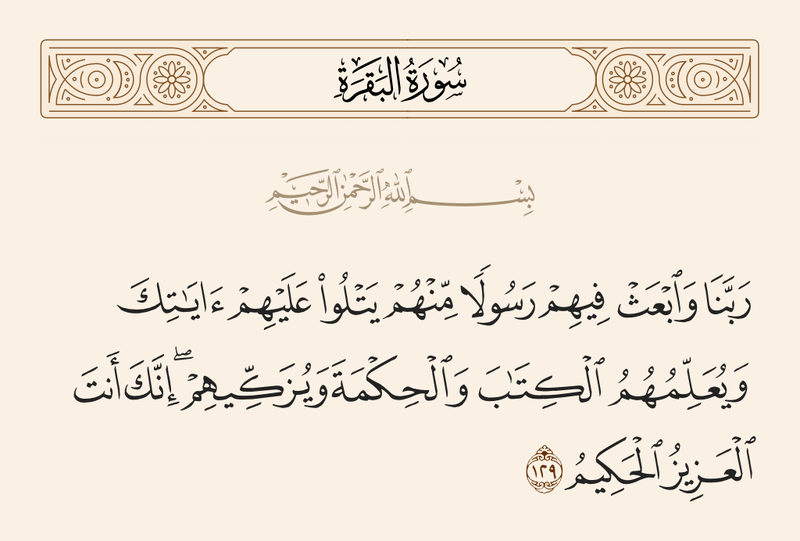 سُورَةُ البَقَرَةِ
بِسْمِ ٱللَّهِ ٱلرَّحْمَٰنِ ٱلرَّحِيمِ
رَبَّنَا وَٱبْعَثْ فِيهِمْ رَسُولًا مِّنْهُمْ يَتْلُوا۟ عَلَيْهِمْ ءَايَـٰتِكَ
وَيُعَلِّمُهُمُ ٱلْكِتَـٰبَ وَٱلْحِكْمَةَ وَيُزَكِّيهِمْ ۖ إِنَّكَ أَنتَ
ٱلْعَزِيزُ ٱلْحَكِيمُ ١٢٩